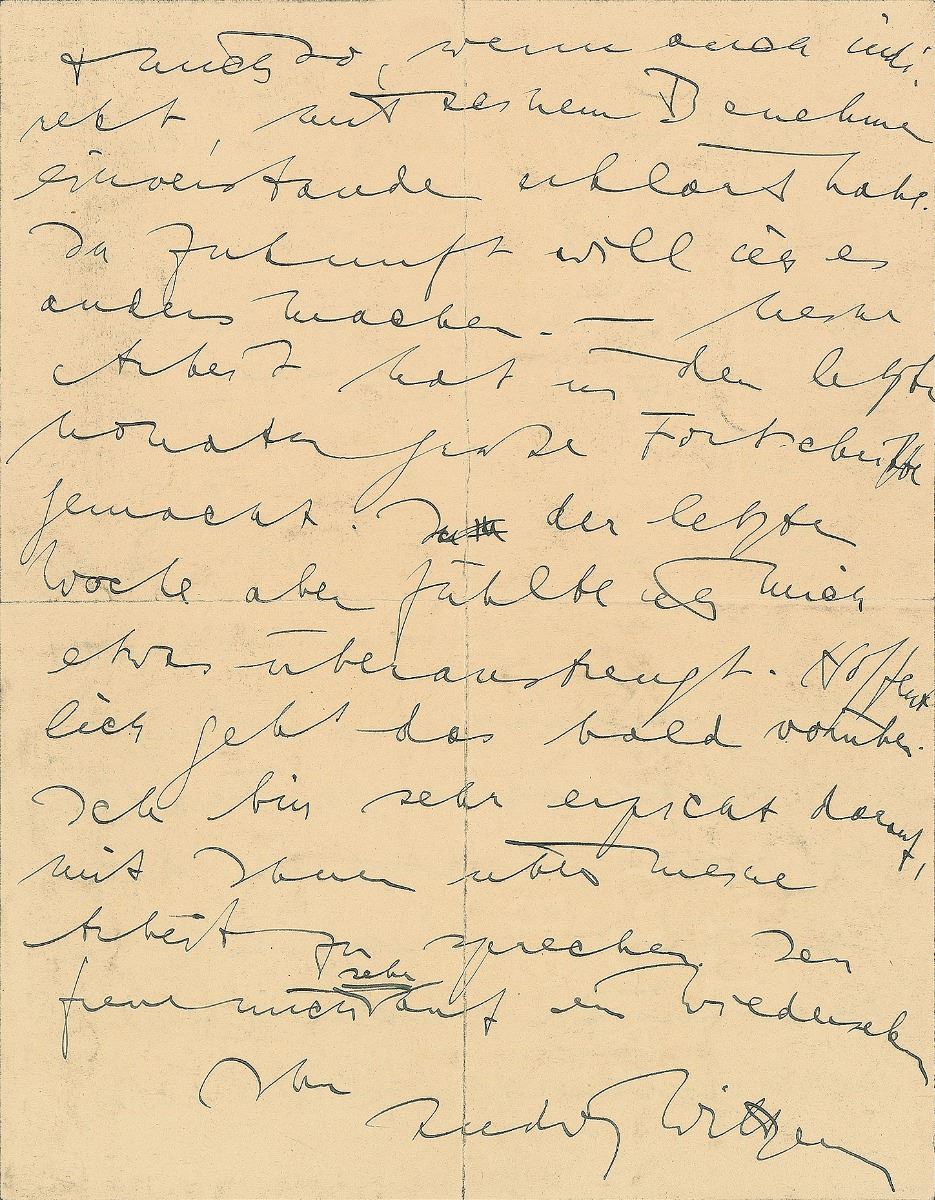 & mich so, wenn auch indi-
rekt, mit seinem Benehmen
einverstanden erklärt habe.
In Zukunft will ich es
anders machen. — Meine
Arbeit hat in den letzten
Monaten große Fortschritte
gemacht. In der letzten
Woche aber fühlte ich mich
etwas überanstrengt. Hoffent-
lich geht das bald vorüber.
Ich bin sehr erpicht darauf,
mit Ihnen über meine
Arbeit zu sprechen. Ich
freue mich sehr auf ein Wiedersehen
Ihr
Ludwig Wittgen